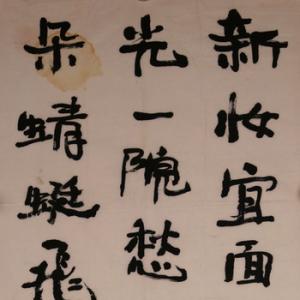 新妆宜面
光一院愁
朵蜻蜓飛